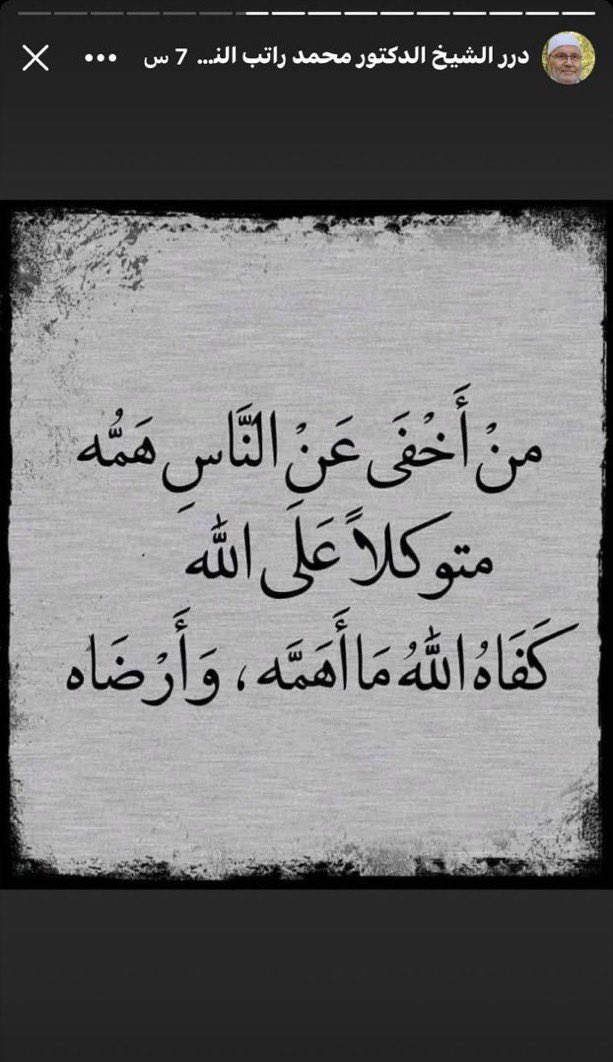 درر الشيخ الدكتور محمد راتب النـ... 7 س
منْ أَخْفَى عَنْ النَّاسِ هَمُّه
متوكلاً عَلَى الله
كَفَاهُ اللهُ مَا أَهَمَّه ، وَأَرْضَاه